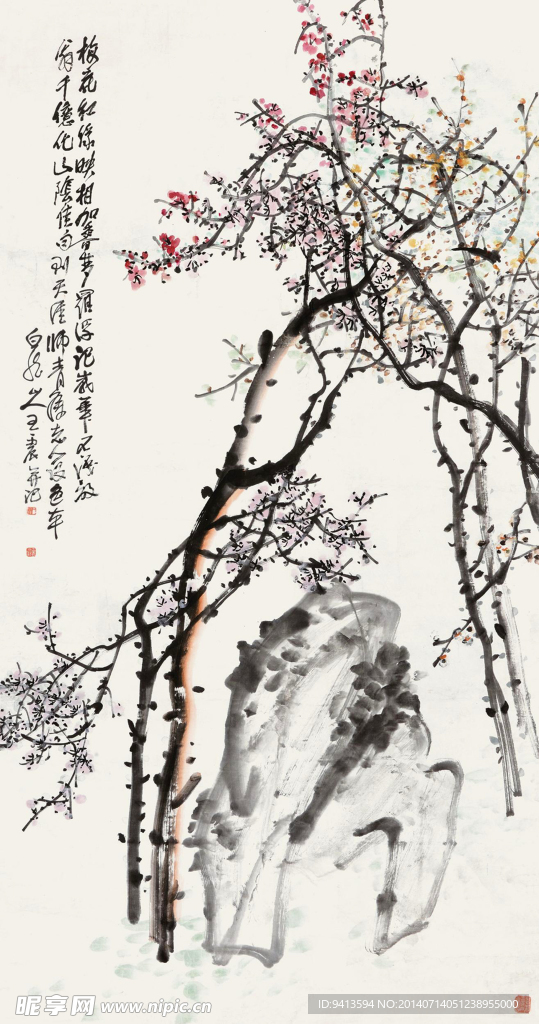 梅花红绿映相加香梦罗浮记岁华不济放
翁千億化山陰佳句到天涯师青藤老人设色本
白龙山人王震并记
昵享网 www.nipic.cn
ID:9413594 NO:20140714051238955000